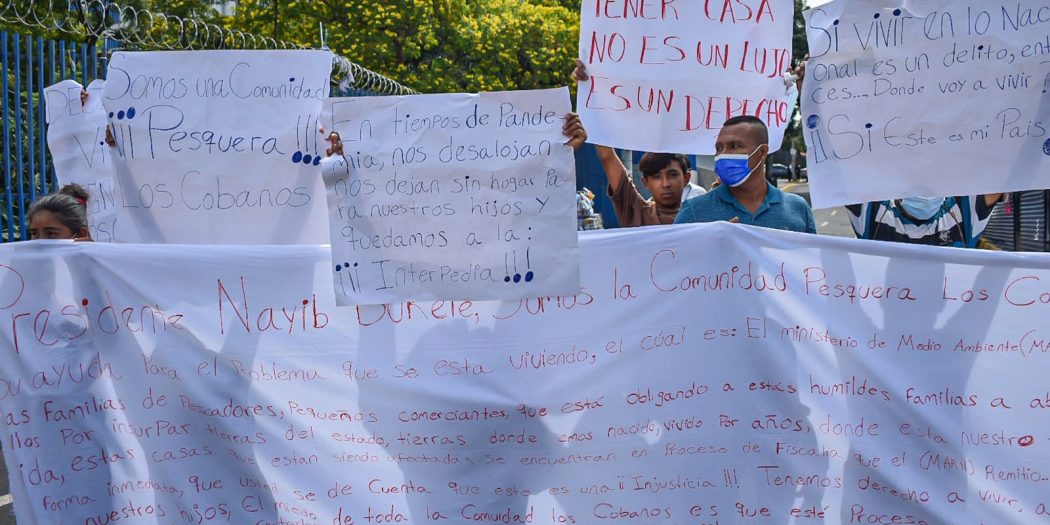 Somos una Comunidad
¡¡¡Pesquera!!!
Los Cobanos
En tiempos de Pande
mia, nos desalojan
nos dejan sin hogar Pa
ra nuestros hijos y
quedamos a la:
¡¡¡Interpedia!!!
TENER CASA
NO ES UN LUJO
ES UN DERECHO
Si vivir en lo Naci
onal es un delito, ent
ces.... Donde voy a vivir
¡Si Este es mi Pais
Presidente Nayib Bukele, Somos la Comunidad Pesquera Los Co
Su ayuda Para el Problema que se esta viviendo, el cúal es: El ministerio de Medio Ambiente (MA
as Familias de Pescadores, Pequeños comerciantes, que está obligando a estás humildes familias a ab
llos Por insurpar tierras del estado, tierras donde emos nacido, vivido Por años, donde esta nuestro
ida, estas casas que estan siendo afectadas se encuentran en Proceso de Fiscalia que el (MARN) Remitio...
forma inmediata, que usted se de Cuenta que esto es una ¡¡Injusticia!!! Tenemos derecho a vivir, a
nuestros hijos, El miedo de toda la Comunidad los Cobanos es que esté Proces